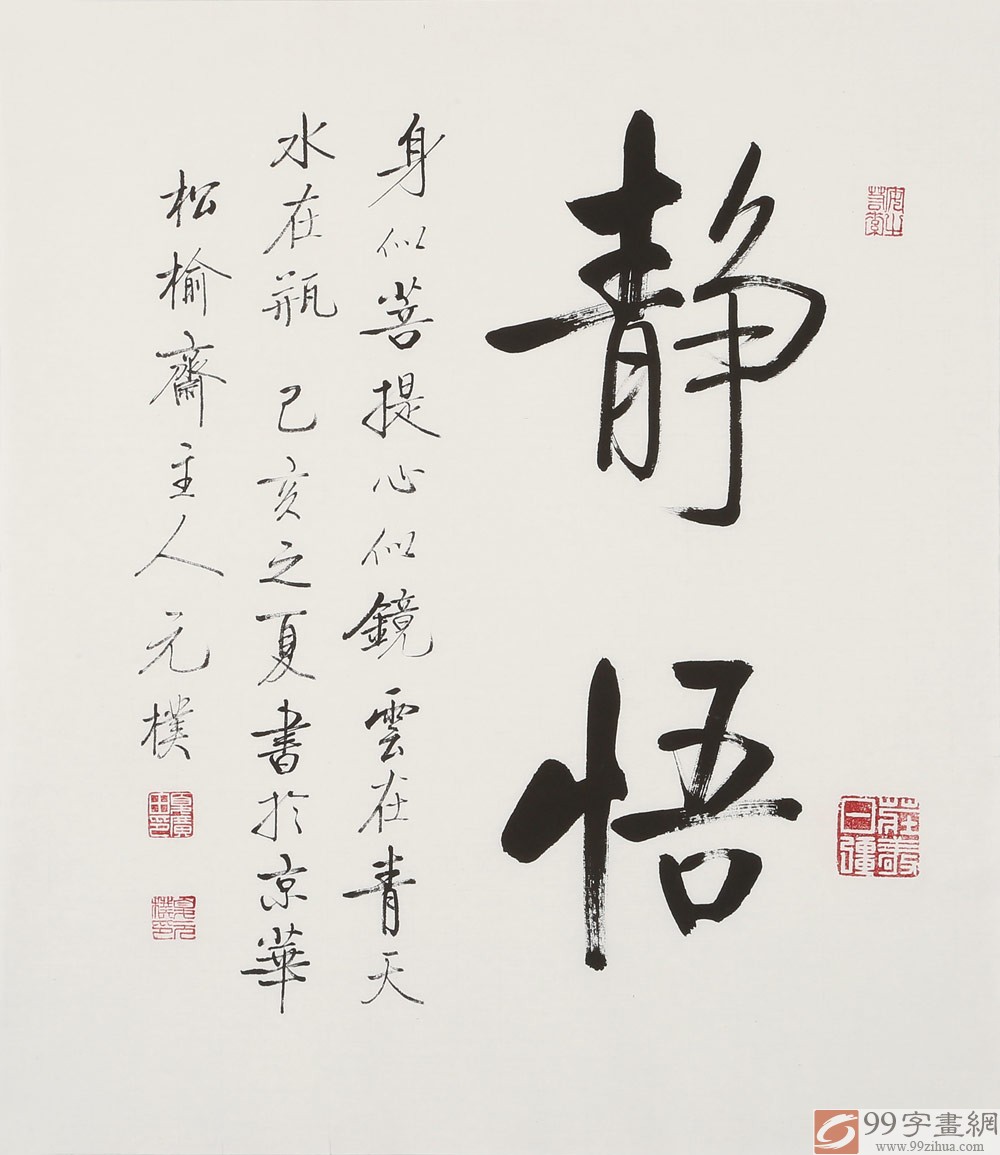 静悟
身似菩提心似鏡雲在青天
水在瓶 己亥之夏書於京華
松榆齋主人元樸
莊敬日強
99字畫網
www.99zihua.com